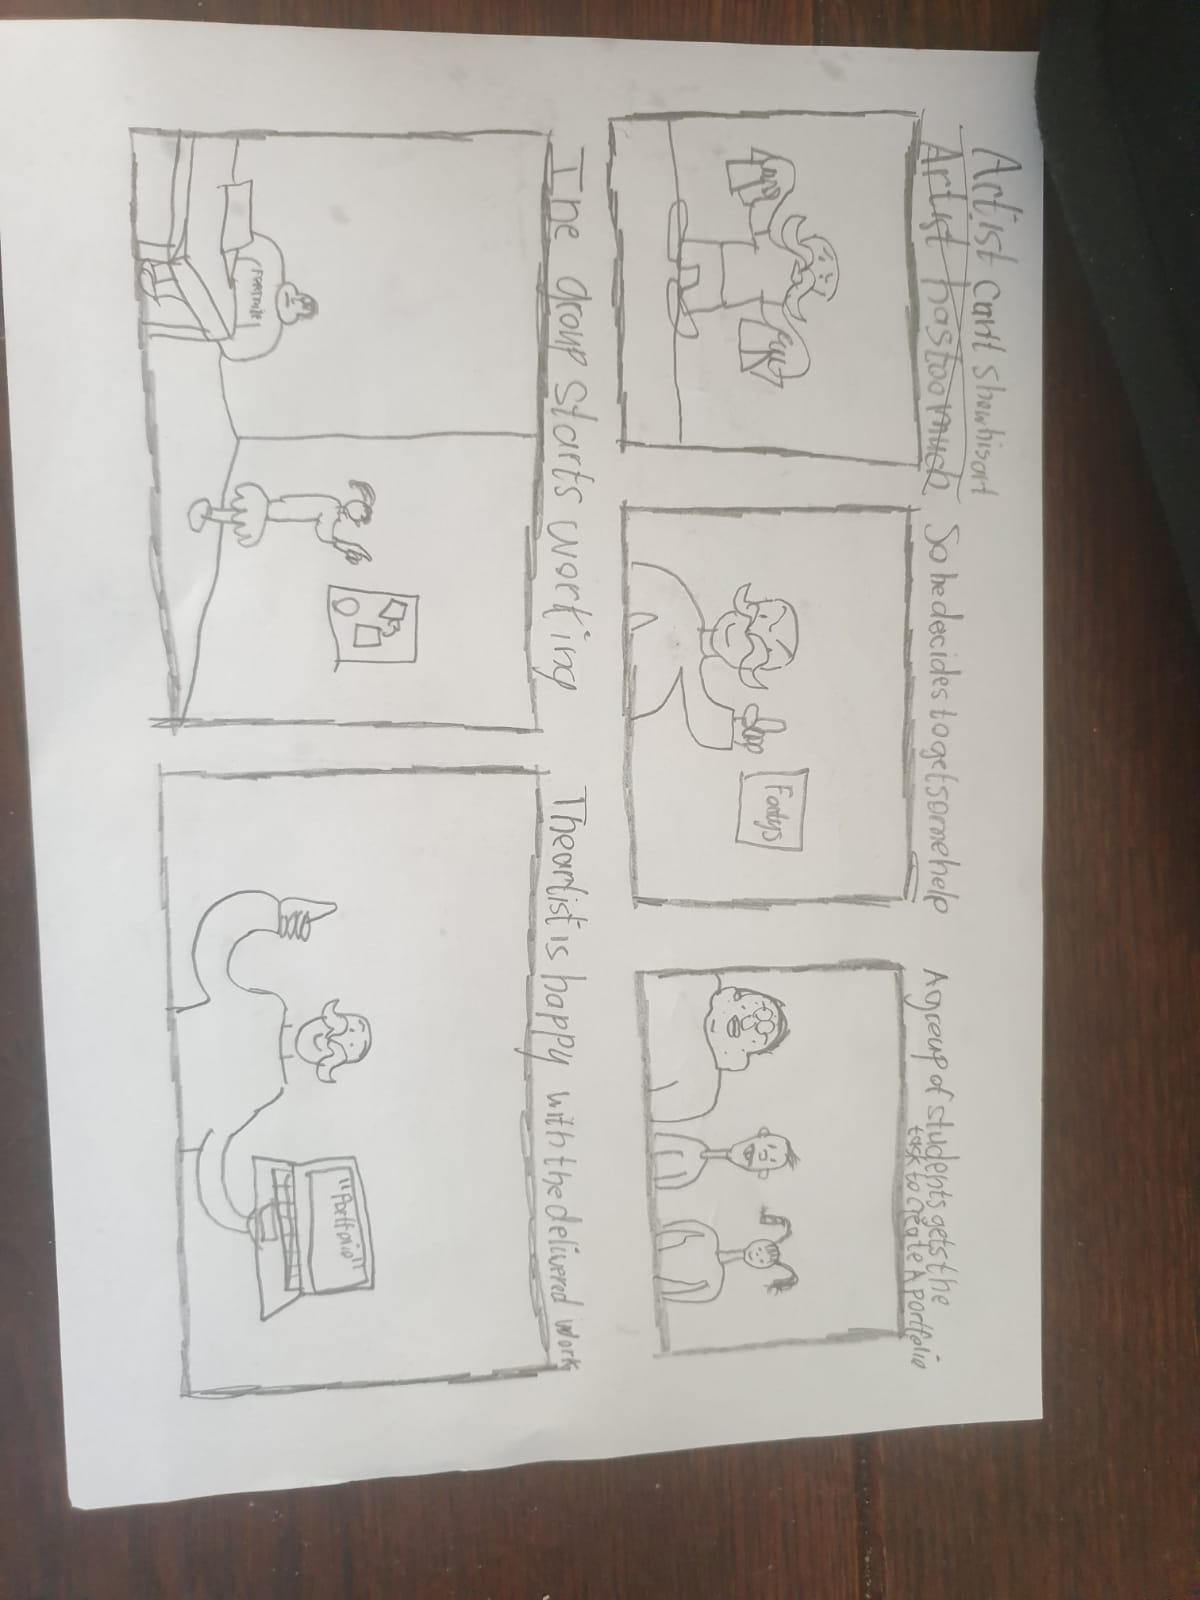 Artist cant show his art
Artist has too much
So he decides to get some help
Fontys
A group of students gets the
task to create A portfolio
The group starts working
The artist is happy with the delivered work
"Portfolio"